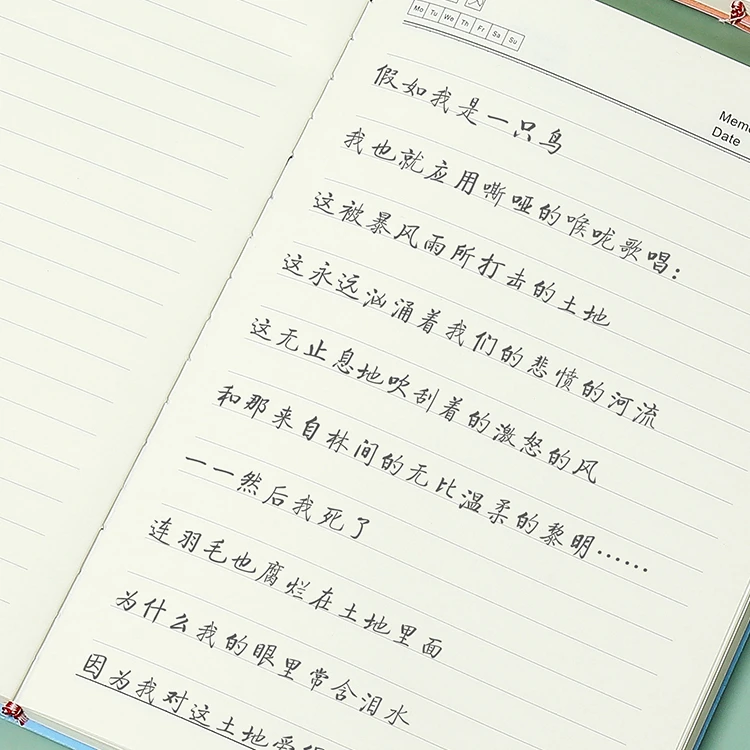 Mo Tu We Th Fr Sa Su
Memo
Date
假如我是一只鸟
我也就应用嘶哑的喉咙歌唱:
这被暴风雨所打击的土地
这永远汹涌着我们的悲愤的河流
这无止息地吹刮着的激怒的风
和那来自林间的无比温柔的黎明……
一一然后我死了
连羽毛也腐烂在土地里面
为什么我的眼里常含泪水
因为我对这土地爱得